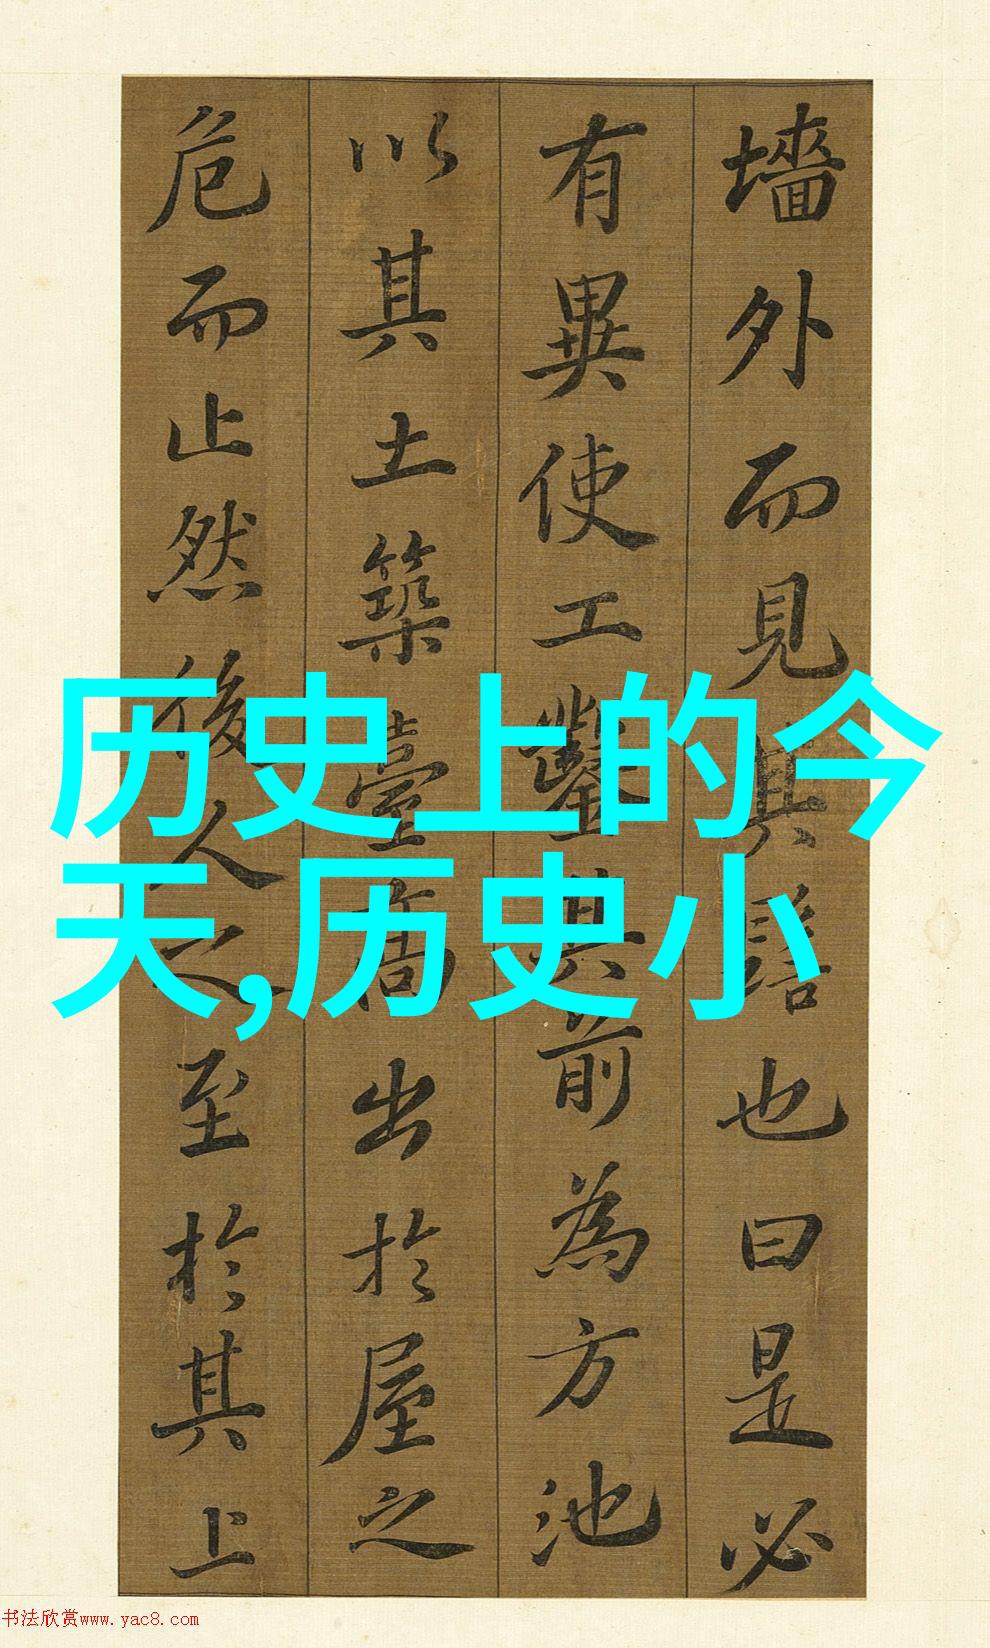 墻外而見其髻也曰是必
有異使工鑿其前為方池
以其土築臺高出於屋之
危而止然後人之至於其上
历史上的今
天,历史小
书法欣赏www.yac8.com